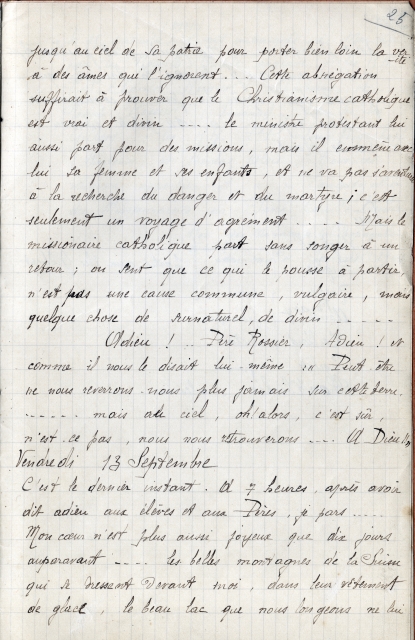 25
jusqu'au ciel de sa patrie pour porter bien loin la vérité
à des âmes qui l'ignorent ... Cette abnégation
suffirait à prouver que le Christianisme catholique
est vrai et divin ..... le ministre protestant lui
aussi part pour des missions, mais il emmène avec
lui sa femme et ses enfants, et ne va pas s'aventurer
à la recherche du danger et du martyre ; c'est
seulement un voyage d'agrément ..... Mais le
missionaire catholique part sans songer à un
retour ; on sent que ce qui le pousse à partir,
n'est pas une cause commune, vulgaire, mais
quelque chose de surnaturel, de divin .....
Adieu ! .. Père Rossier, Adieu ! et
comme il nous le disait lui même : « Peut être
ne nous reverrons-nous plus jamais sur cette terre.
..... mais au ciel, oh! alors, c'est sûr,
n'est ce pas, nous nous retrouverons .... A Dieu !! »
Vendredi 13 Septembre
C'est le dernier instant. A 7 heures, après avoir
dit adieu aux élèves et aux Pères, je pars ....
Mon cœur n'est plus aussi joyeux que dix jours
auparavant .... les belles montagnes de la Suisse
qui se dressent devant moi, dans leur vêtement
de glace, le beau lac que nous longeons ne lui